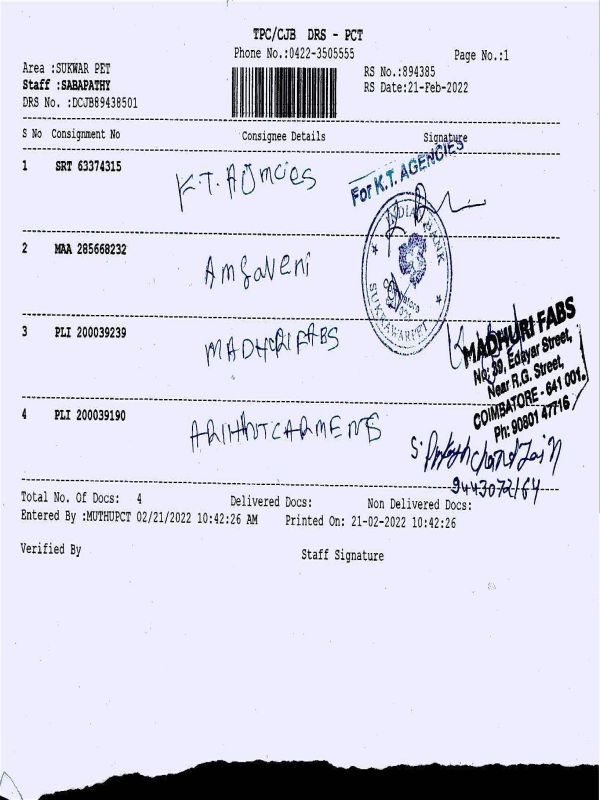 TPC/CJB DRS - PCT
Phone No.:0422-3505555 Page No.:1
Area :SUKWAR PET RS No.:894385
Staff :SABAPATHY RS Date:21-Feb-2022
DRS No. :DCJB89438501
S No Consignment No Consignee Details Signature
1 SRT 63374315 K.T. AJmcies For K.T. AGENCIES
2 MAA 285668232 Amsaveni INDIAN BANK SUKRAWARPET
3 PLI 200039239 MADHURI FABS
MADHURI FABS
No: 39, Edayar Street,
Near R.G. Street,
COIMBATORE - 641 001.
Ph: 90801 47716
4 PLI 200039190 ARIHANTCARMENTS
S. Prakash chand Jain
9443072164
Total No. Of Docs: 4 Delivered Docs: Non Delivered Docs:
Entered By :MUTHUPCT 02/21/2022 10:42:26 AM Printed On: 21-02-2022 10:42:26
Verified By Staff Signature